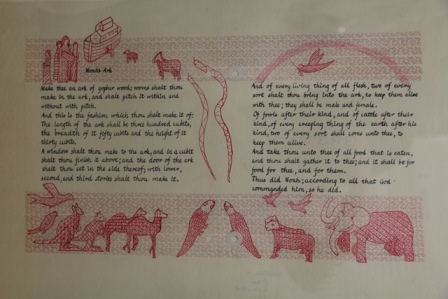 Noah's Ark
Make thee an ark of gopher wood; rooms shalt thou
make in the ark, and shalt pitch it within and
without with pitch.
And this is the fashion which thou shalt make it of:
The length of the ark shall be three hundred cubits,
the breadth of it fifty cubits and the height of it
thirty cubits.
A window shalt thou make to the ark, and in a cubit
shalt thou finish it above; and the door of the ark
shalt thou set in the side thereof; with lower,
second, and third stories shalt thou make it.
And of every living thing of all flesh, two of every
sort shalt thou bring into the ark, to keep them alive
with thee; they shall be male and female.
Of fowls after their kind, and of cattle after their
kind, of every creeping thing of the earth after his
kind, two of every sort shall come unto thee, to
keep them alive.
And take thou unto thee of all food that is eaten,
and thou shalt gather it to thee; and it shall be for
food for thee, and for them.
Thus did Noah; according to all that God
commanded him, so he did.